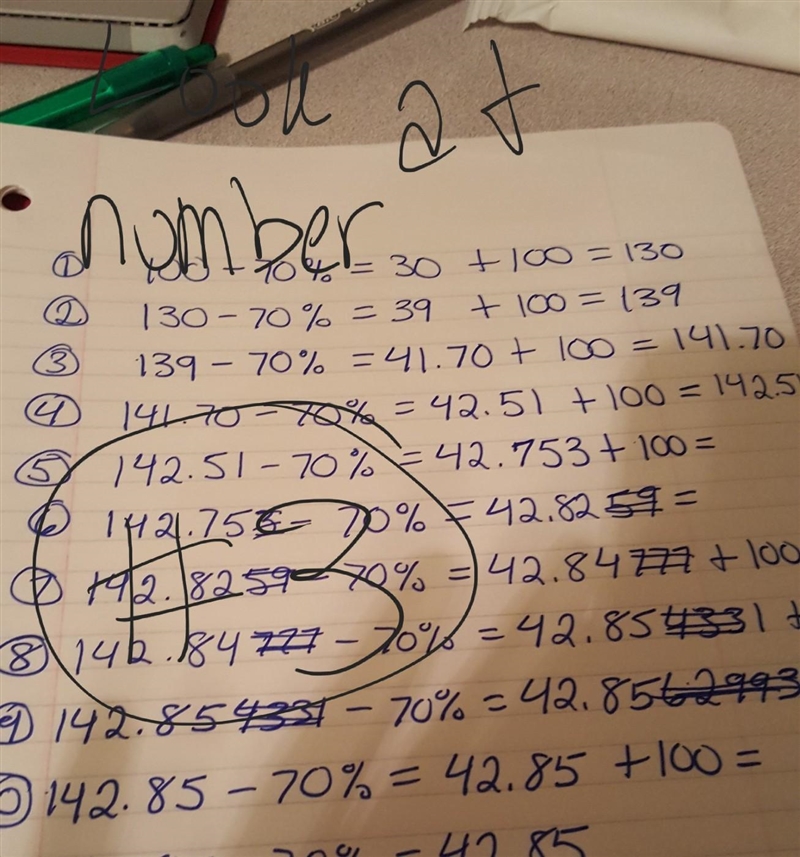 Look at
number
① 100 - 70% = 30 + 100 = 130
② 130 - 70% = 39 + 100 = 139
③ 139 - 70% = 41.70 + 100 = 141.70
④ 141.70 - 70% = 42.51 + 100 = 142.51
⑤ 142.51 - 70% = 42.753 + 100 =
⑥ 142.753 - 70% = 42.8259 =
#3
⑦ 142.8259 - 70% = 42.84777 + 100
⑧ 142.84777 - 70% = 42.854331 +
⑨ 142.854331 - 70% = 42.8562993
142.85 - 70% = 42.85 + 100 =
70% = 42.85